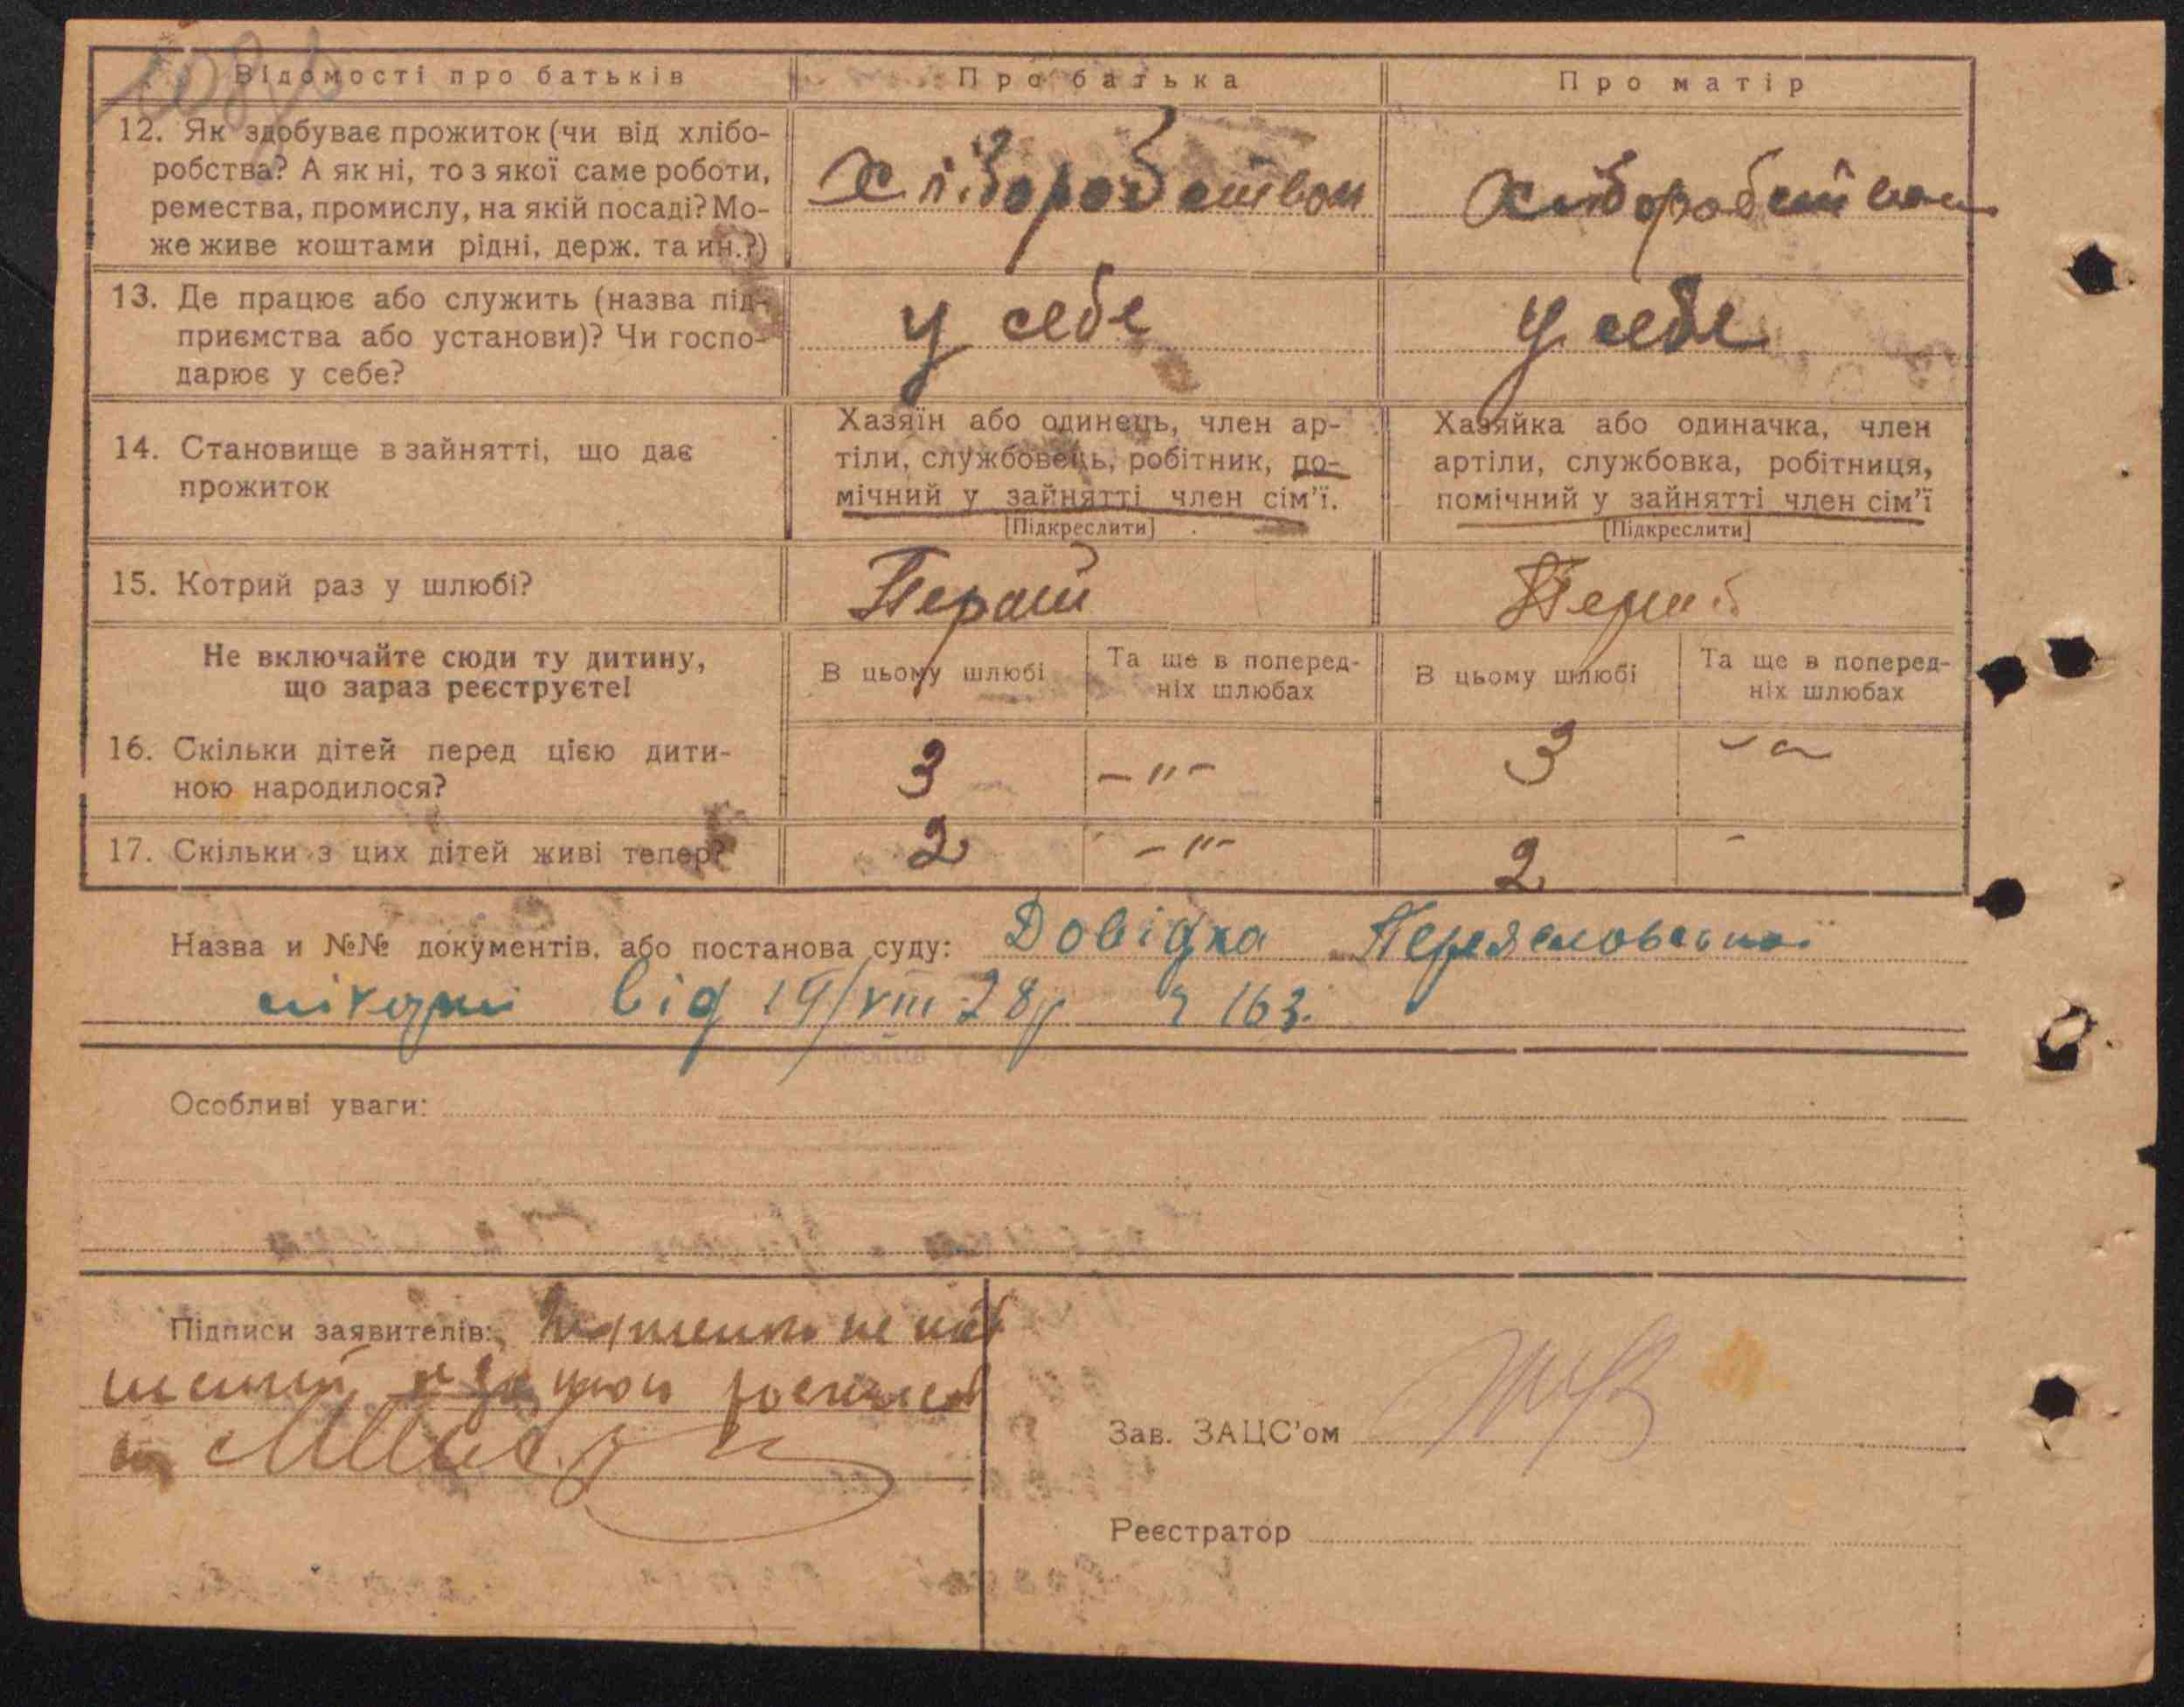 Відомості про батьків Про батька Про матір
12. Як здобуває прожиток (чи від хлібо-
робства? А як ні, то з якої саме роботи,
ремества, промислу, на якій посаді? Мо-
же живе коштами рідні, держ. та ин.?)
Хліборобством Хліборобством
13. Де працює або служить (назва під-
приємства або установи)? Чи госпо-
дарює у себе?
у себе у себе
14. Становище в зайнятті, що дає
прожиток
Хазяїн або одинець, член ар-
тіли, службовець, робітник, по-
мічний у зайнятті член сім'ї.
[Підкреслити]
Хазяйка або одиначка, член
артіли, службовка, робітниця,
помічний у зайнятті член сім'ї
[Підкреслити]
15. Котрий раз у шлюбі? Перший Перший
Не включайте сюди ту дитину,
що зараз реєструєте!
В цьому шлюбі Та ще в поперед-
ніх шлюбах
В цьому шлюбі Та ще в поперед-
ніх шлюбах
16. Скільки дітей перед цією дити-
ною народилося?
3 -"- 3
17. Скільки з цих дітей живі тепер? 2 -"- 2 -
Назва и №№ документів, або постанова суду: Довідка
від 19/VIII 28р ч 163.
Особливі уваги:
Підписи заявителів:
Зав. ЗАЦС'ом
Реєстратор